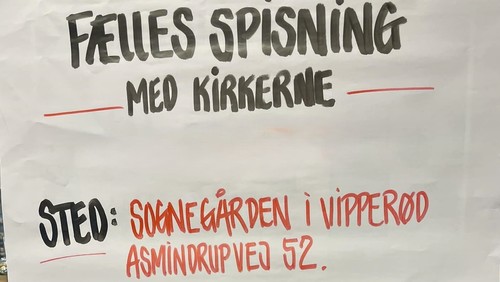 FÆLLES SPISNING
MED KIRKERNE
STED: SOGNEGÅRDEN I VIPPERØD
ASMINDRUPVEJ 52.